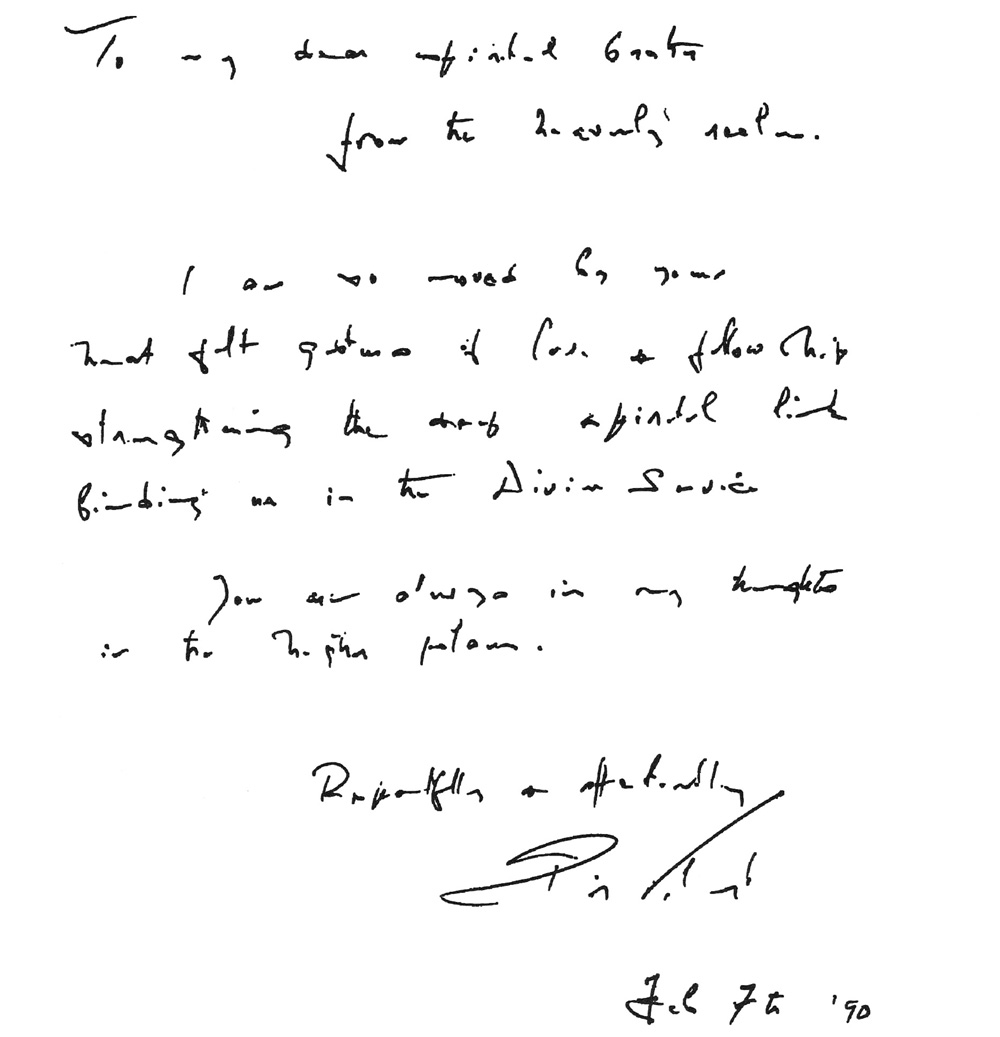 To my dear spiritual brother
from the heavenly realm.
I am so moved by your
heart felt gesture of love & fellowship
strengthening the deep spiritual link
binding us in the Divine Service
You are always in my thoughts
in the higher planes.
Respectfully & affectionally
Feb 7th '90